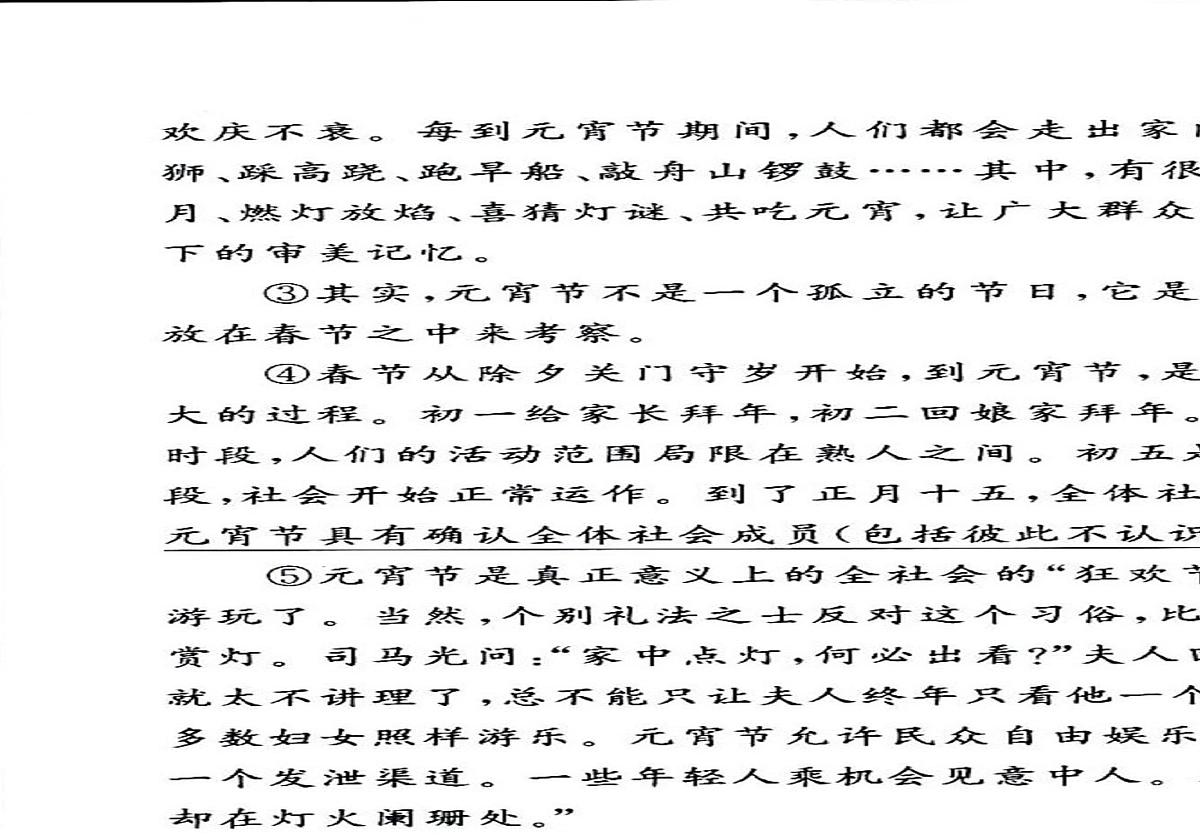 欢庆不衰。每到元宵节期间,人们都会走出家
狮、踩高跷、跑旱船、敲舟山锣鼓……其中,有很
月、燃灯放焰、喜猜灯谜、共吃元宵,让广大群众
下的审美记忆。
③其实,元宵节不是一个孤立的节日,它是
放在春节之中来考察。
④春节从除夕关门守岁开始,到元宵节,是
大的过程。初一给家长拜年,初二回娘家拜年。
时段,人们的活动范围局限在熟人之间。初五是
段,社会开始正常运作。到了正月十五,全体社
元宵节具有确认全体社会成员(包括彼此不认识
⑤元宵节是真正意义上的全社会的“狂欢节
游玩了。当然,个别礼法之士反对这个习俗,比
赏灯。司马光问:“家中点灯,何必出看?”夫人
就太不讲理了,总不能只让夫人终年只看他一个
多数妇女照样游乐。元宵节允许民众自由娱乐
一个发泄渠道。一些年轻人乘机会见意中人。
却在灯火阑珊处。”